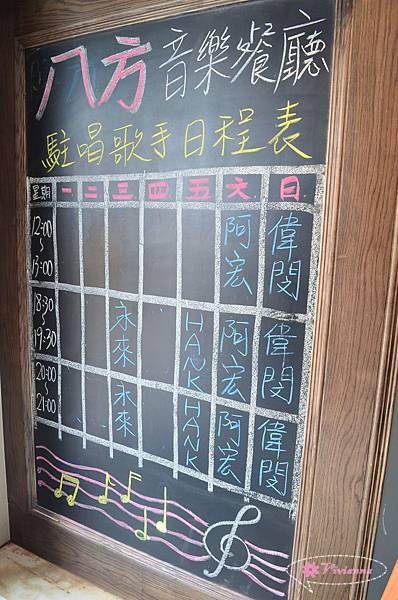 八方音樂餐廳
駐唱歌手日程表
星期 一 二 三 四 五 六 日
12:00~13:00 阿宏 偉閔
18:30~19:30 永來 HANK 阿宏 偉閔
20:00~21:00 永來 HANK 阿宏 偉閔
Vivianna